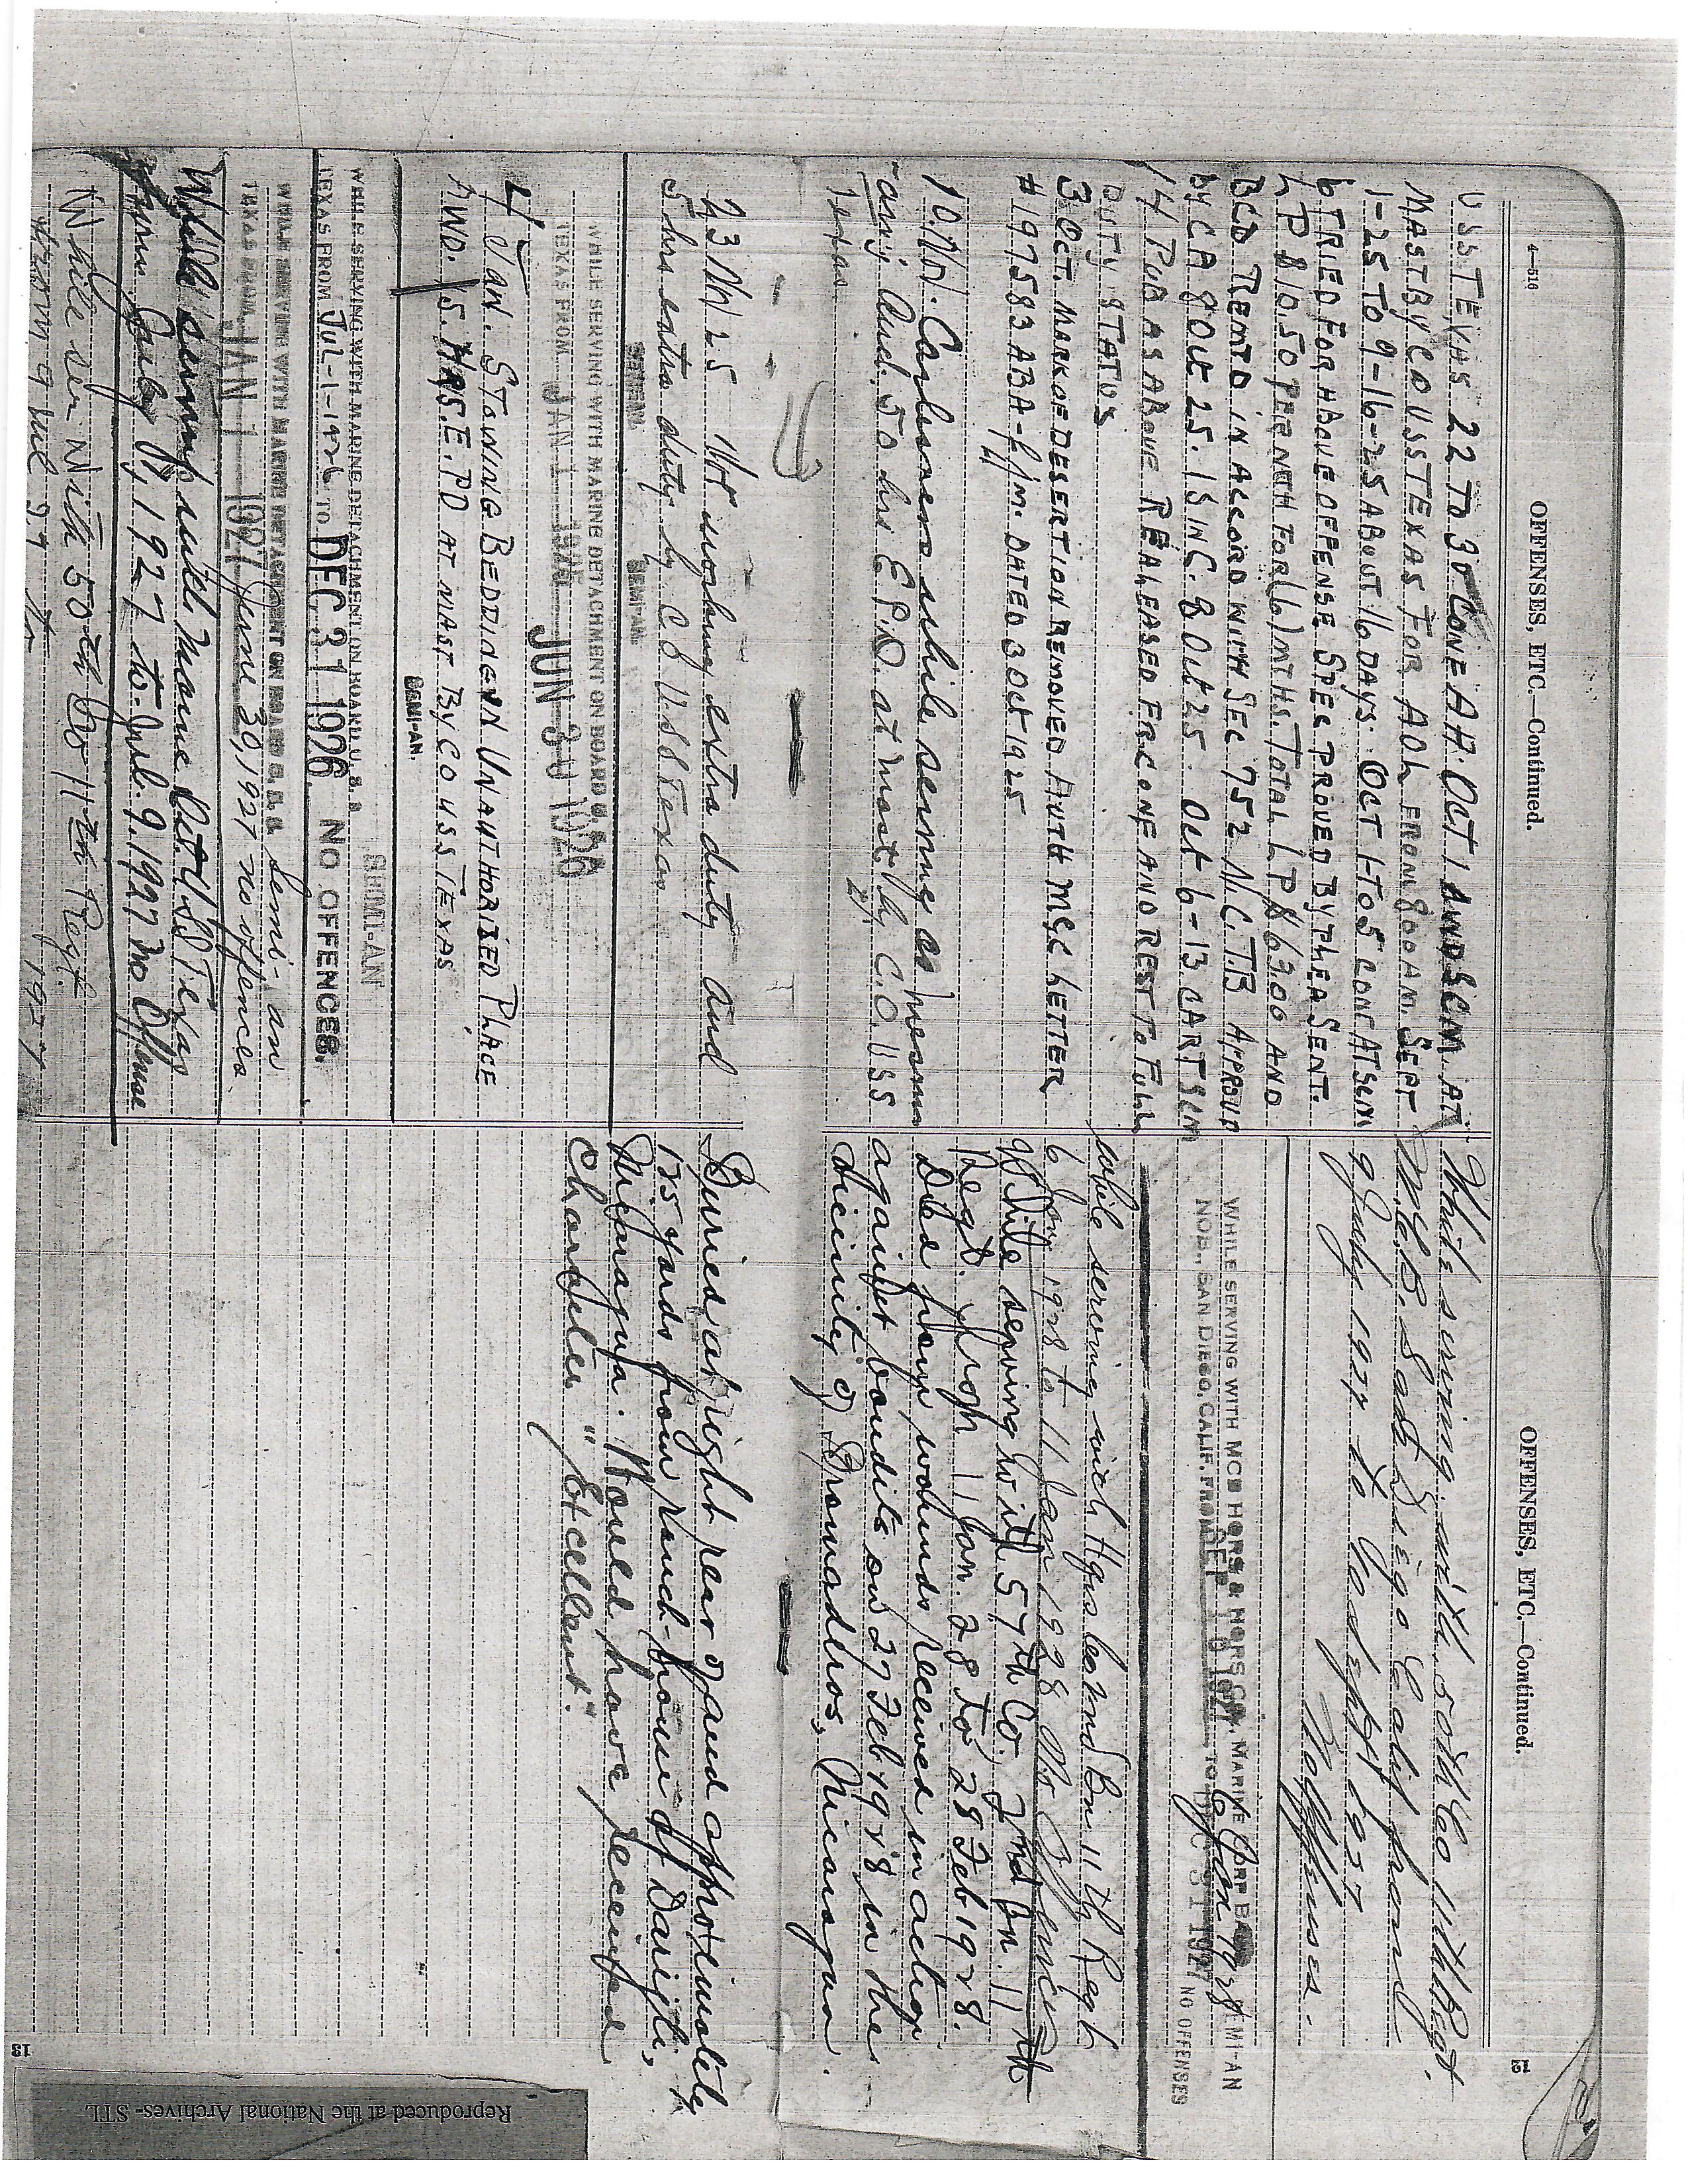 4—516
OFFENSES, ETC.—Continued.
USS TEXAS 22 TO 30 CONF AP. OCT 1 AND SCM AT
MAST BY CO USS TEXAS FOR AOL FROM 800 AM SEPT
1-25 TO 9-16-25 ABOUT 16 DAYS. OCT 1-TO 5 CONF ATSCM
6 TRIED FOR ABOVE OFFENSE SPEC PROVED BY PLEA SENT.
LP $10.50 PER MTH FOR (6) MTHS. TOTAL LP $63.00 AND
BCD REMTD IN ACCORD WITH SEC 752 N.C.TB APPROVD
BY CA 8 OCT 25. IS IN C. 8 OCT 25. OCT 6-13 CARTSCM
14 PUB AS ABOVE REALEASED FR CONF AND REST TO FULL
DUTY STATUS
3 OCT. MARK OF DESERTION REMOVED AUTH MGC LETTER
# 197583 ABA-4/M. DATED 3 OCT 1925
10 Nov. Carlessness while serving as messman
Awd. 50 hrs E.P.D. at mast by C.O. USS
Texas.
23 Nov 25 Not working extra duty and
5 hrs extra duty by CO USS Texas
SEMI-AN.
WHILE SERVING WITH MARINE DETACHMENT ON BOARD U.S.S.
TEXAS FROM JAN 1 1926 JUN 30 1926
4 JAN. STOWING BEDDING IN UNAUTHORIZED PLACE
AWD. 5. HRS. E.PD AT MAST BY CO USS TEXAS
SEMI-AN.
SEMI-AN
WHILE SERVING WITH MARINE DETACHMENT ON BOARD U.S.S.
TEXAS FROM JUL-1-1926 TO DEC 31 1926 NO OFFENCES.
WHILE SERVING WITH MARINE DETACHMENT ON BOARD U.S.S. Semi-an
TEXAS FROM JAN 1 1927 June 30, 1927 no offences.
While serving with Marine Det USS Texas
from July 1, 1927 to Jul. 9. 1927 No Offense
While ser. With 50th Co 11th Regt.
from 9 Jul 27 to 1927
OFFENSES, ETC.—Continued.
12
While serving with 50th Co 11th Regt.
M.C.B. San Diego Calif from
9 July 1927 to 6 Sept 1927
No Offenses.
WHILE SERVING WITH MCB HQRS & HQRS CO. MARINE CORP BASE SEMI-AN
6 Jan 1928
NOB, SAN DIEGO, CALIF. FROM SEP 8 1927 TO DEC 31 1927 NO OFFENSES
while serving with Hqrs 2nd Bn 11th Regt
6 Jan 1928 to 11 Jan 1928 No Offences
While serving with 57th Co. 2nd Bn. 11th
Regt. from 11 Jan. 28 to 28 Feb 1928.
Died from wounds received in action
against bandits on 27 Feb 1928 in the
vicinity of Bromaderos, Nicaragua.
Buried at right rear of and approximately
125 yards from ranch-house of Daraili,
Nicaragua. Would have received
character "Excellent".
13
Reproduced at the National Archives- STL